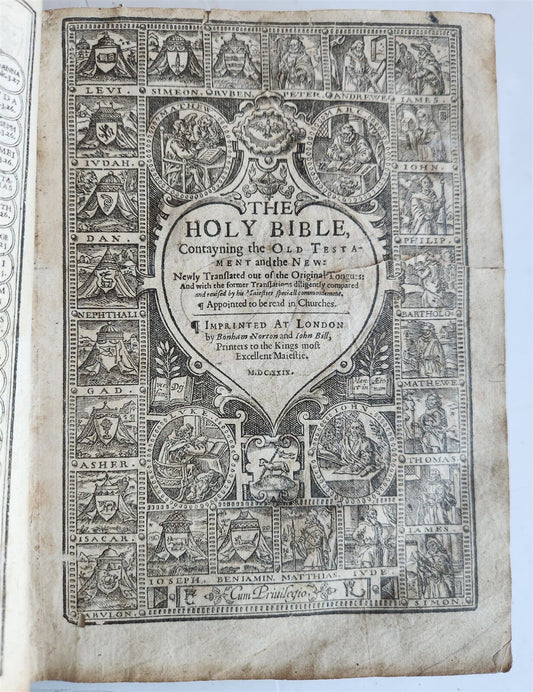 LEVI. SIMEON. RVBEN. PETER. ANDREWE. IAMES.
MATTHEW
MARKE
IVDAH.
IOHN.
THE
HOLY BIBLE,
Contayning the OLD TESTA-
MENT and the NEW:
Newly Translated out of the Original Tongues:
And with the former Translations diligently compared
and revised by his Maiesties speciall commandement.
¶ Appointed to be read in Churches.
¶ IMPRINTED AT LONDON
by Bonham Norton and Iohn Bill,
Printers to the Kings most
Excellent Maiestie.
M.DC.XXIX.
DAN.
PHILIP.
NEPHTHALI.
BARTHOLO.
GAD.
MATHEWE
ASHER.
THOMAS.
LVKE
IOHN
ISACAR.
IAMES
ZABVLON.
IOSEPH. BENIAMIN. MATTHIAS. IVDE.
SIMON.
Cum Privilegio